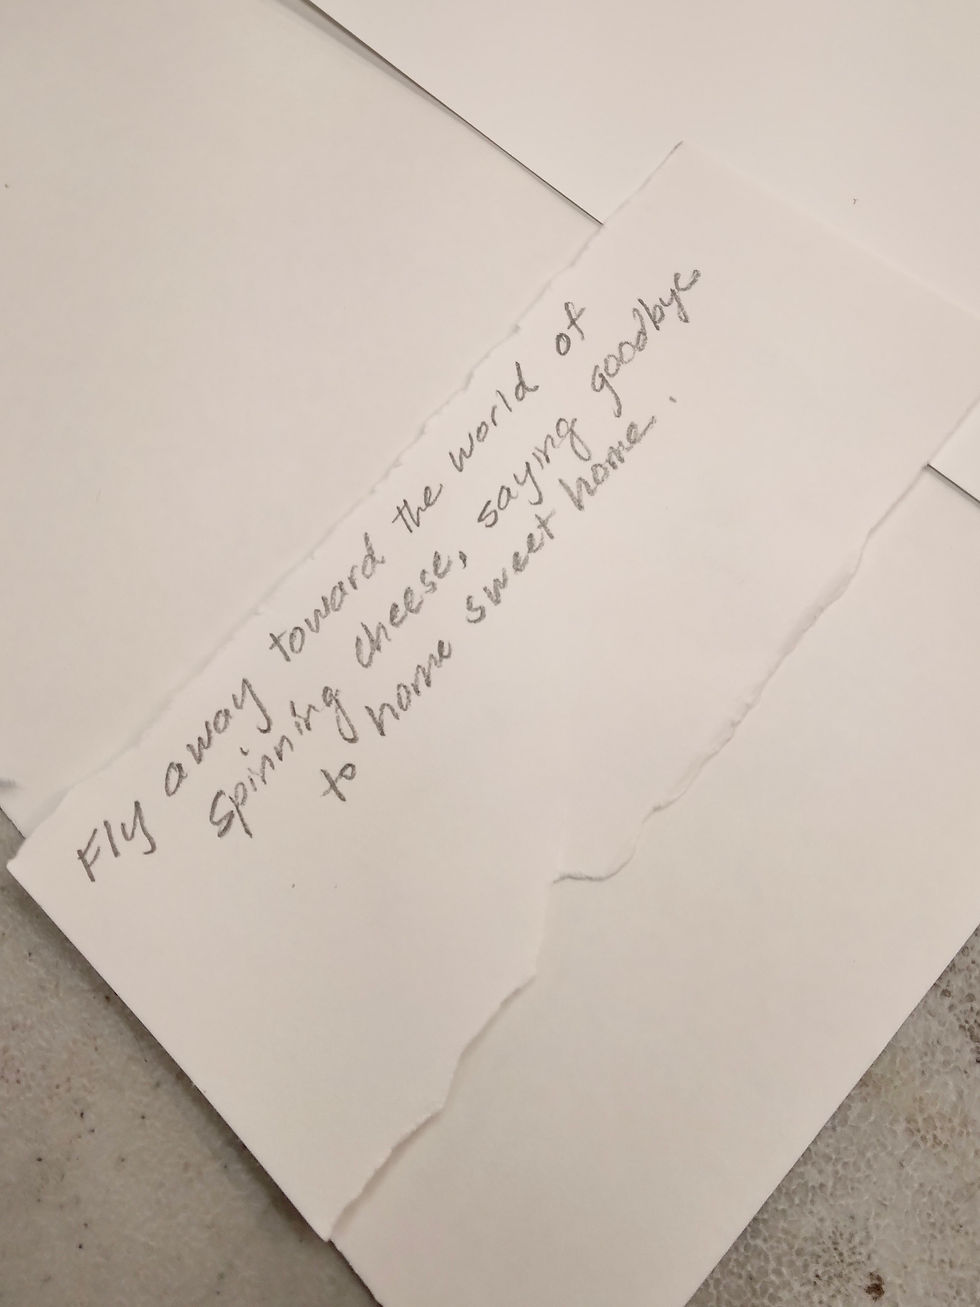 Fly away toward the world of
spinning cheese, saying goodbye
to home sweet home.